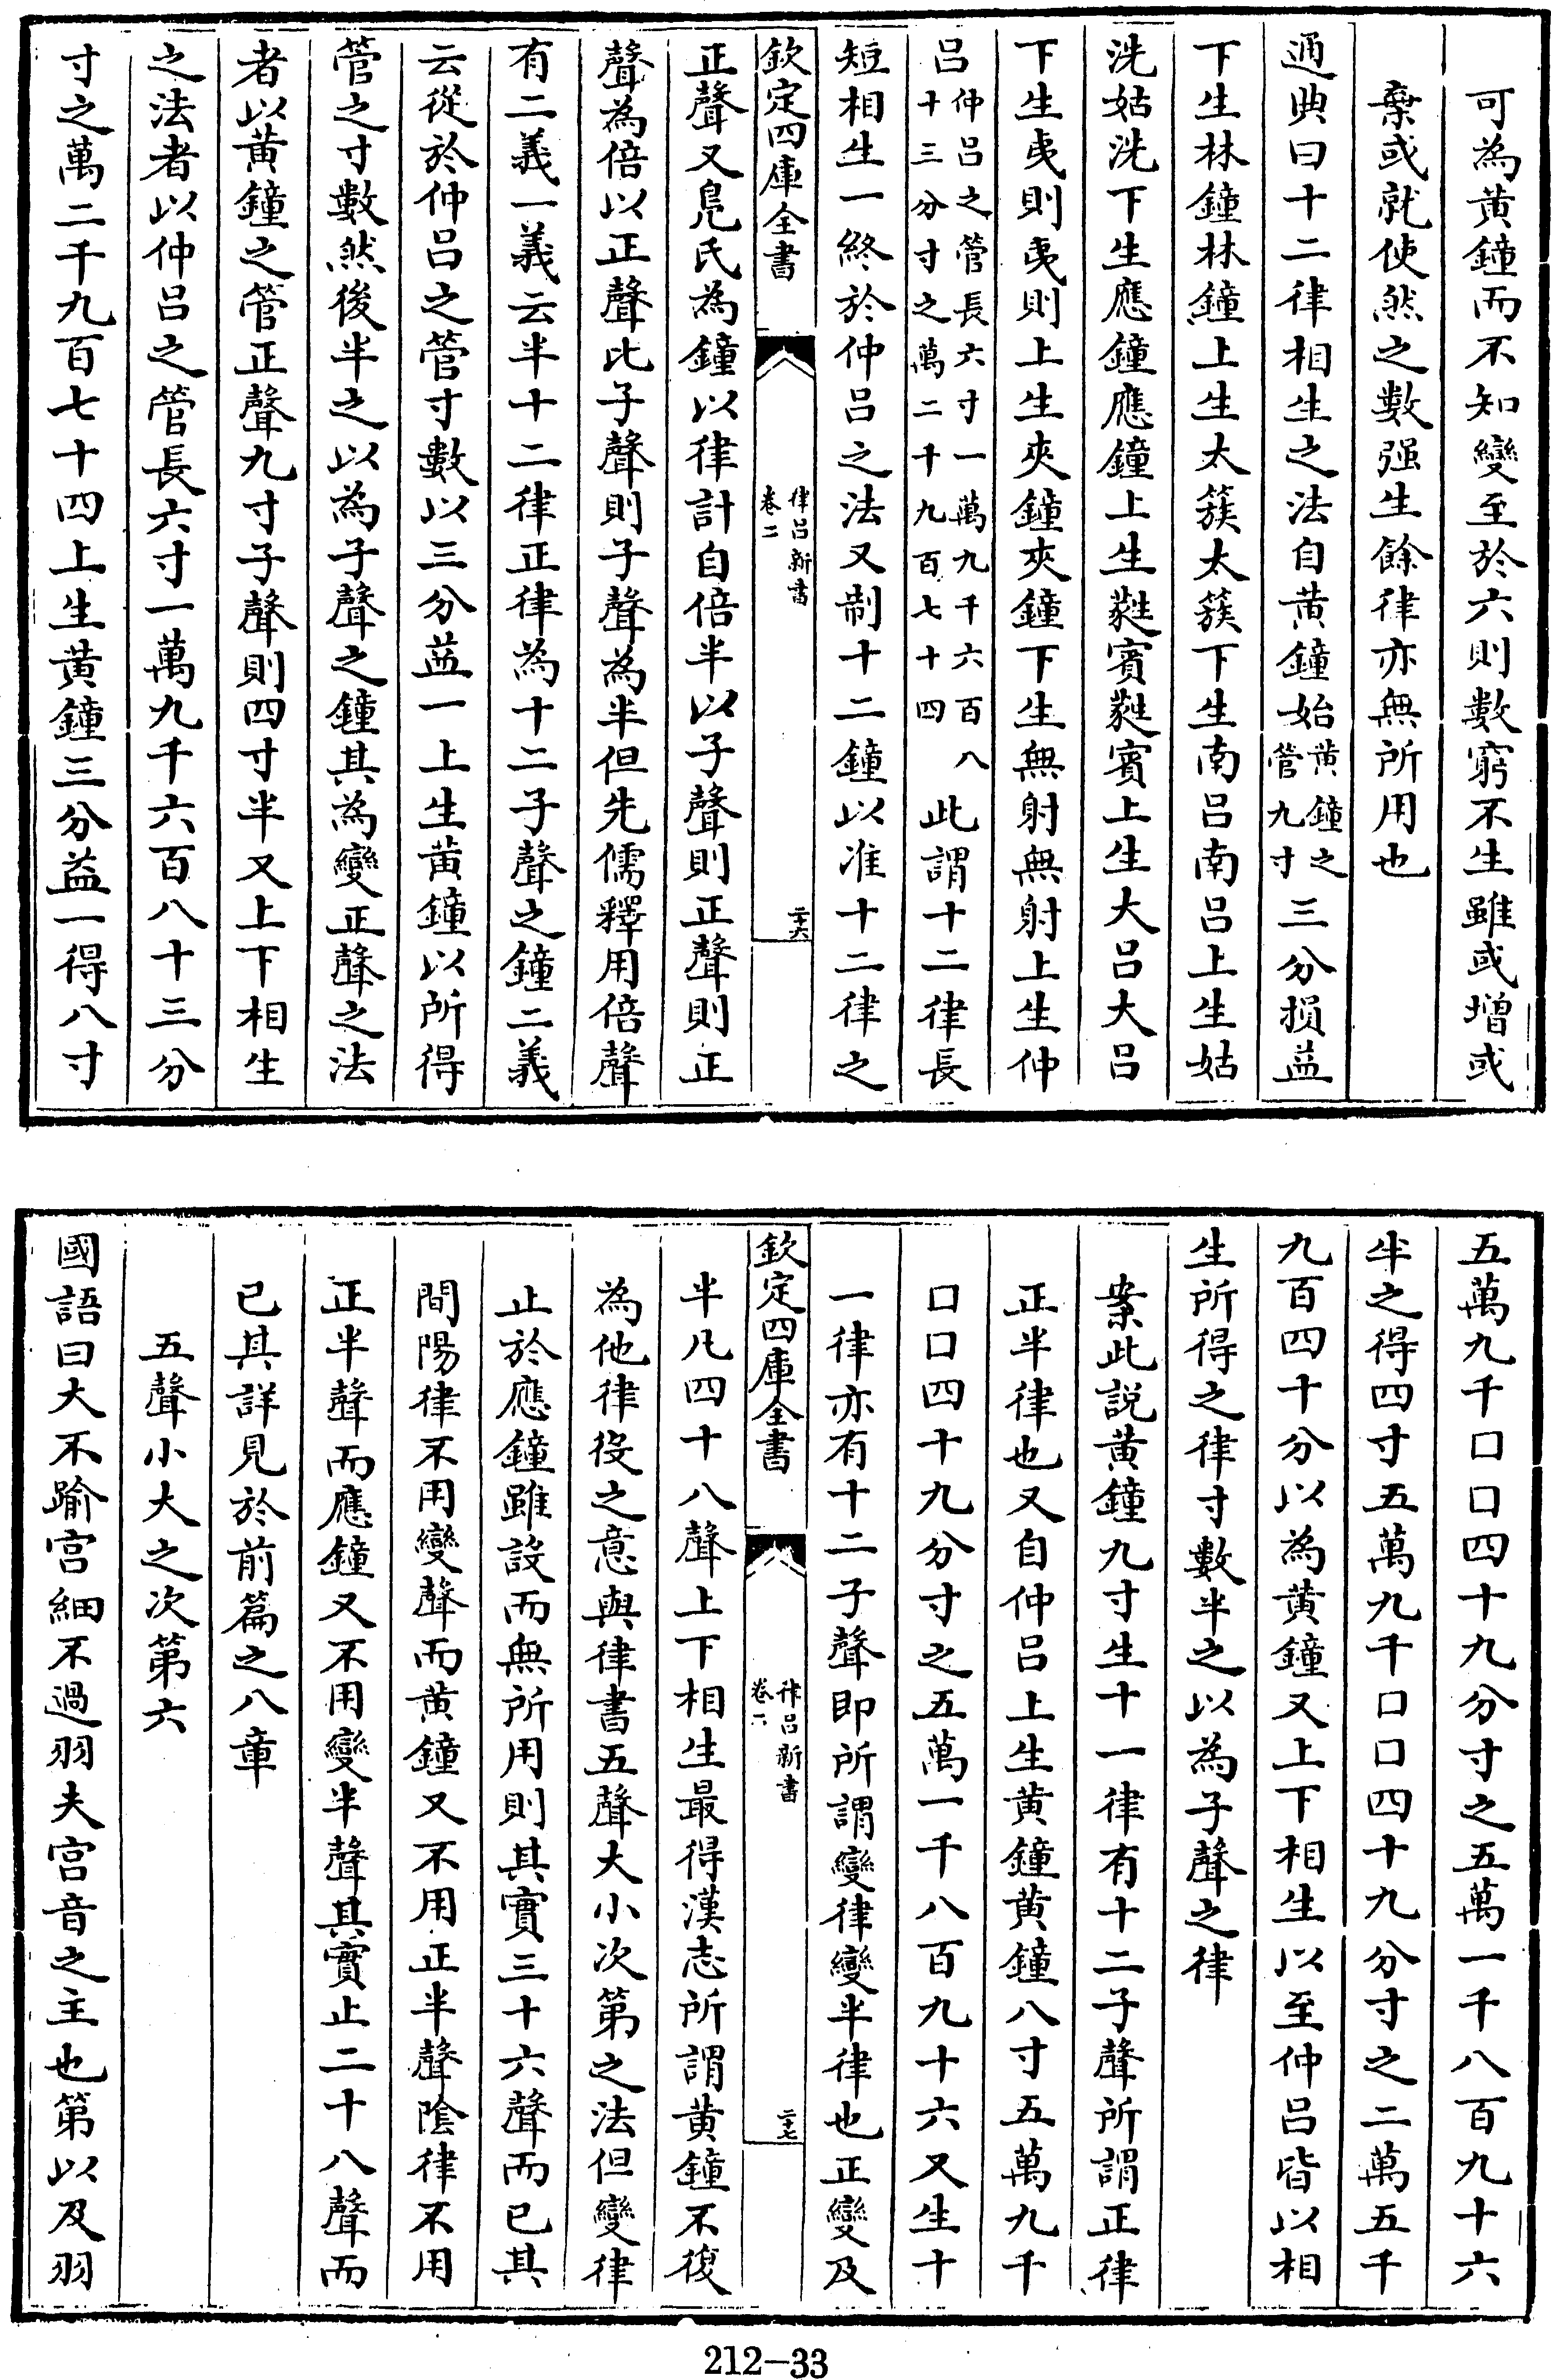 可為黄鐘而不知變至於六則數窮不生雖或增或
棄或就使然之數强生餘律亦無所用也
通典曰十二律相生之法自黄鐘始黄鐘之管九寸三分損益
下生林鐘林鐘上生太簇太簇下生南吕南吕上生姑
洗姑洗下生應鐘應鐘上生蕤賓蕤賓上生大吕大吕
下生夷則夷則上生夾鐘夾鐘下生無射無射上生仲
吕仲吕之管長六寸一萬九千六百八十三分寸之萬二千九百七十四此謂十二律長
短相生一終於仲吕之法又制十二鐘以准十二律之
欽定四庫全書
律吕新書
卷二
二十六
正聲又鳧氏為鐘以律計自倍半以子聲則正聲則正
聲為倍以正聲比子聲則子聲為半但先儒釋用倍聲
有二義一義云半十二律正律為十二子聲之鐘二義
云從於仲吕之管寸數以三分益一上生黄鐘以所得
管之寸數然後半之以為子聲之鐘其為變正聲之法
者以黄鐘之管正聲九寸子聲則四寸半又上下相生
之法者以仲吕之管長六寸一萬九千六百八十三分
寸之萬二千九百七十四上生黄鐘三分益一得八寸
五萬九千口口四十九分寸之五萬一千八百九十六
半之得四寸五萬九千口口四十九分寸之二萬五千
九百四十分以為黄鐘又上下相生以至仲吕皆以相
生所得之律寸數半之以為子聲之律
案此説黄鐘九寸生十一律有十二子聲所謂正律
正半律也又自仲吕上生黄鐘黄鐘八寸五萬九千
口口四十九分寸之五萬一千八百九十六又生十
一律亦有十二子聲即所謂變律變半律也正變及
欽定四庫全書
律吕新書
二十七
半凡四十八聲上下相生最得漢志所謂黄鐘不復
為他律役之意與律書五聲大小次第之法但變律
止於應鐘雖設而無所用則其實三十六聲而已其
間陽律不用變聲而黄鐘又不用正半聲陰律不用
正半聲而應鐘又不用變半聲其實止二十八聲而
已其詳見於前篇之八章
五聲小大之次第六
國語曰大不踰宫細不過羽夫宫音之主也第以及羽
212-33